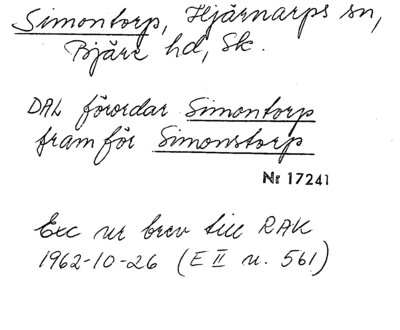 Simontorp, Hjärnarps sn,
Bjäre hd, Sk.
DAL förordar Simontorp
framför Simonstorp
Nr 17241
Exc ur brev till RAK
1962-10-26 (E II u. 561)